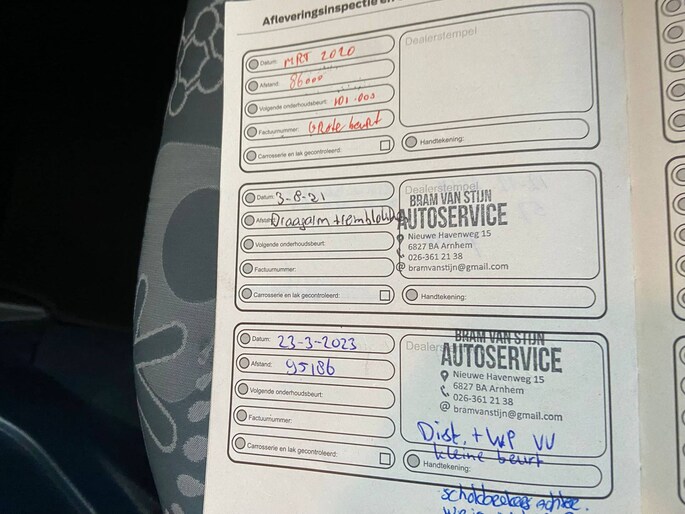 Afleveringsinspectie en
Datum: MRT 2020
Dealerstempel
Afstand: 86000
Volgende onderhoudsbeurt: 101.000
Factuurnummer: Grote beurt
Carrosserie en lak gecontroleerd:
Handtekening:
Datum: 3-8-21
Dealerstempel
BRAM VAN STIJN
AUTOSERVICE
Nieuwe Havenweg 15
6827 BA Arnhem
026-361 21 38
bramvanstijn@gmail.com
Draagarm +remblokken
Volgende onderhoudsbeurt:
Factuurnummer:
Carrosserie en lak gecontroleerd:
Handtekening:
Datum: 23-3-2023
BRAM VAN STIJN
AUTOSERVICE
Nieuwe Havenweg 15
6827 BA Arnhem
026-361 21 38
bramvanstijn@gmail.com
Afstand: 95186
Volgende onderhoudsbeurt:
Factuurnummer:
Dist. + WP VV
kleine beurt
Carrosserie en lak gecontroleerd:
Handtekening:
schokbrekers achter.